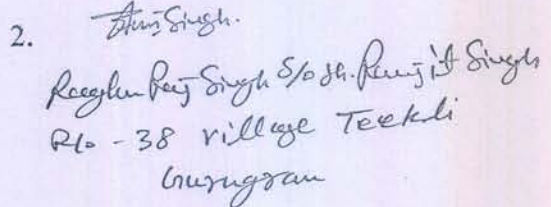 2. Singh.
Raghu Raj Singh S/o Sh. Ranjit Singh
R/o - 38 village Teekli
Gurugram